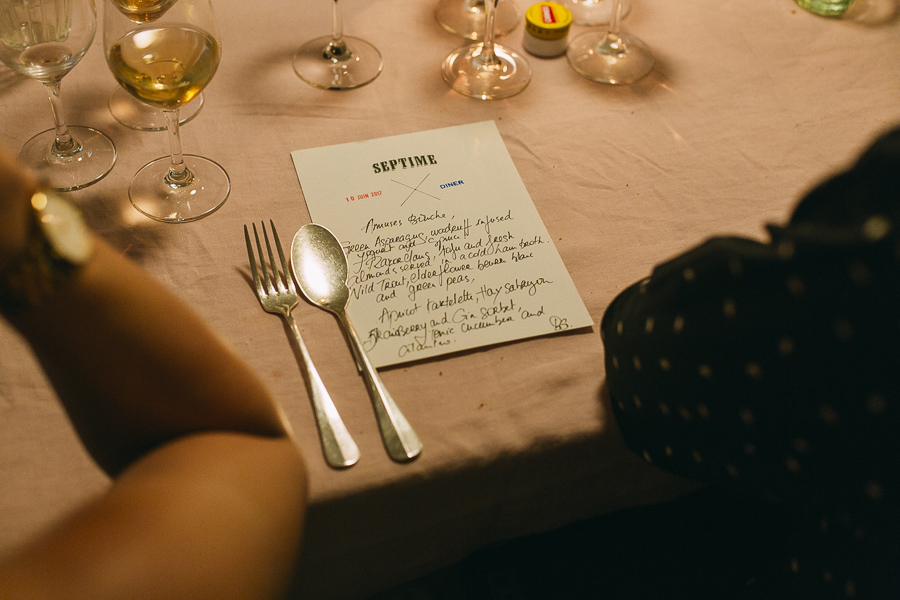 SEPTIME
10 JUIN 2017 DINER
Amuses Bouche,
Green Asparagus, woodruff infused
Yogurt and
Razor clams, and fresh
almonds served in a cold ham broth.
Wild Trout, elderflower beurre blanc
and green peas,
Apricot tartelette, Hay sabayon
Strawberry and Gin Sorbet,
Tonic cucumber and
cilantro.